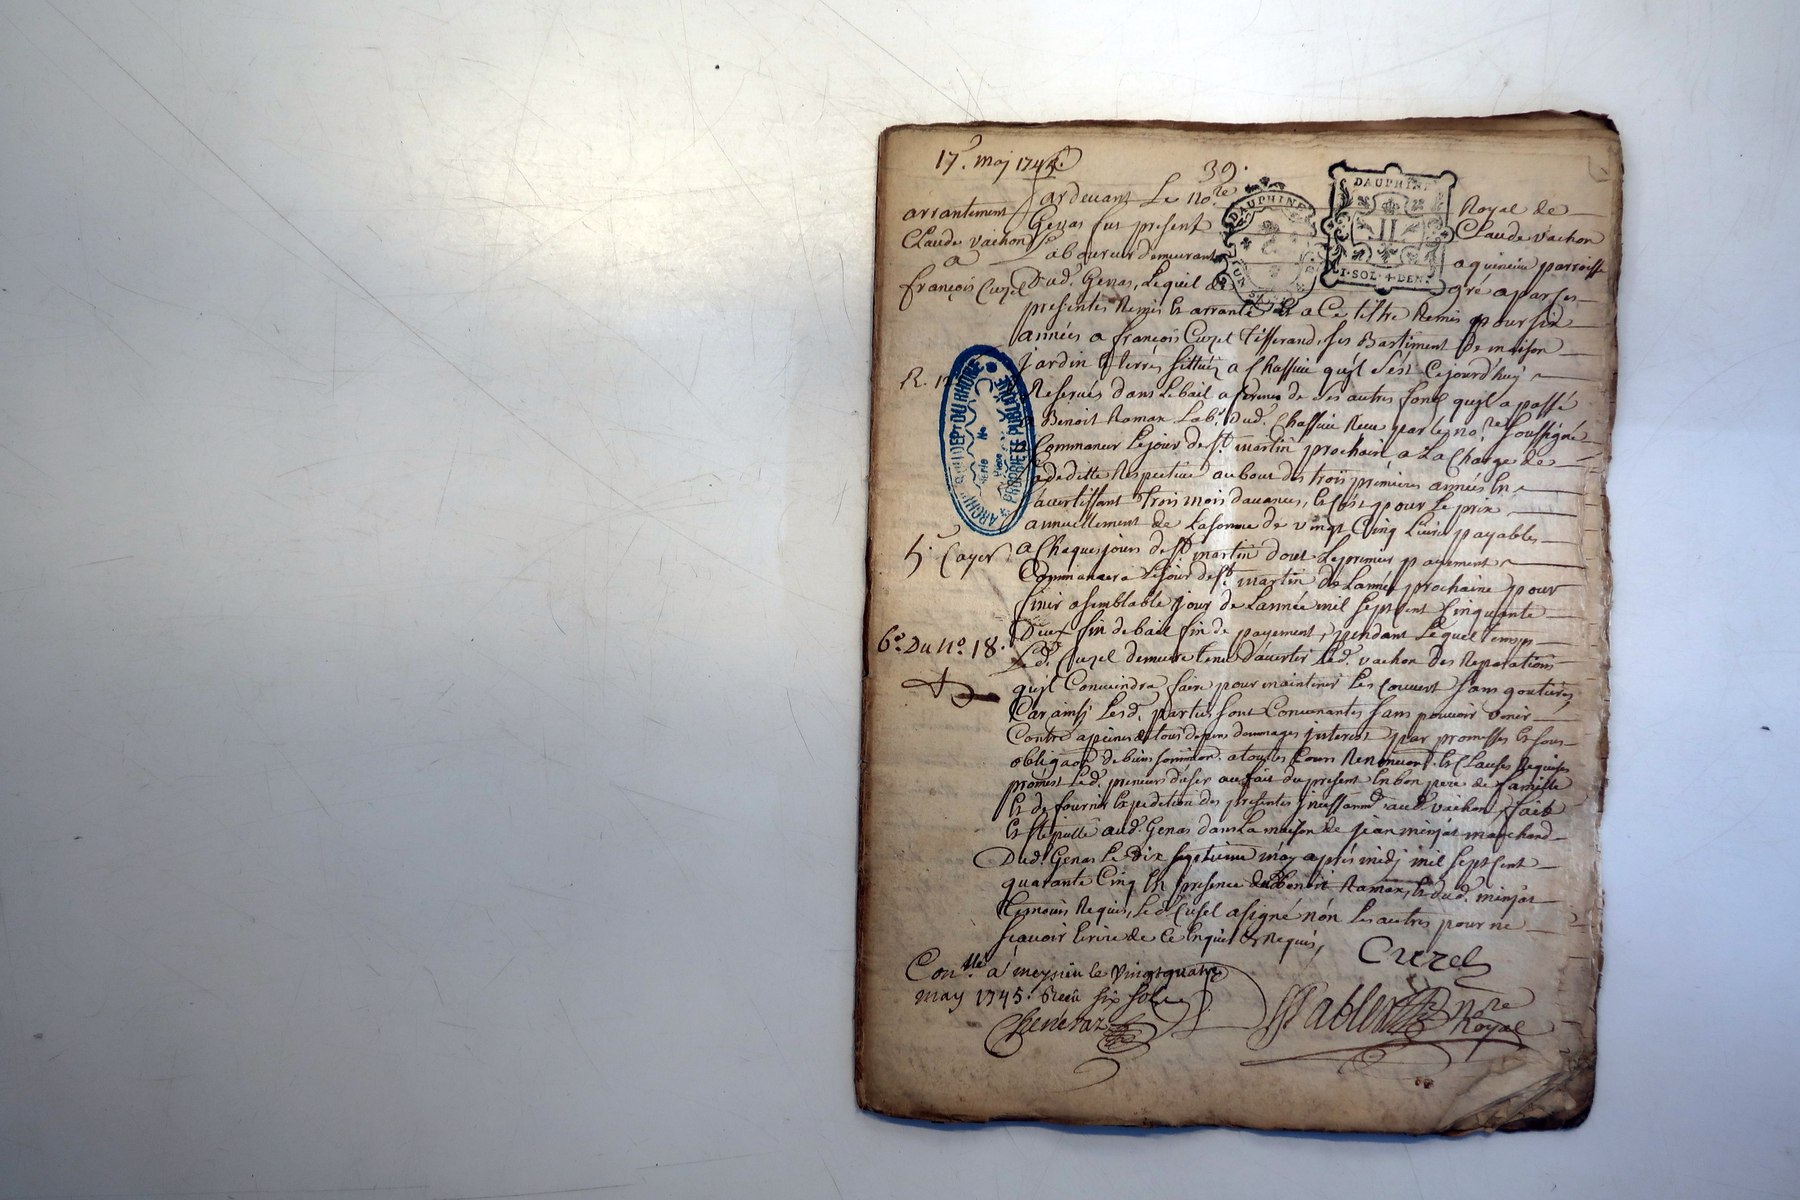 17e. may 1745.
39.
arrantement
Claude vachon
a
françois Curel
R. 12
5e. Cayer
6e. Du No. 18.
DAUPHINE
DAUPHINE
II
I·SOL·4·DEN
ARCHIVES DU DEPT DU RHONE
Serie No
Piece
PROPRIETE PUBLIQUE
Pardevant Le nore. Royal de
Genas fus present Claude vachon
Laboureur demeurant a quincieu parroisse
Dud. Genas, Lequel de gré a par ces
presentes Remis et arrante et a Ce tiltre Remis pour six
années a françois Curel Tisserand, ses Bastiment de maison
jardin & terres sittués a Chassieu qu'il s'est Cejourd'huy
Reservés dans Le bail a ferme de ses autres fonds qu'il a passé
a Benoit Ramax Labr. Dud. Chassieu Receu par le nore. soussigné
Commancer Le jour de St. martin prochain a La Charge de
deditte Respective au bout des trois premieres années En
s'avertissant Trois mois d'avances, Et C'est pour Le prix
annuellement de La somme de vingt Cinq Livres payables
a Chaques jours de St. martin dont Le premier payement
Commancera Le jour de St. martin de L'année prochaine pour
finir a semblable jour de L'année mil sept Cent Cinquante
Deux fin de bail fin de payement, pendant Lequel temps
Led. Curel demeure tenu d'avertir Led. vachon des Reparations
qu'il Conviendra faire pour maintenir Les Couvert sans goutieres,
Car ainsy Lesd. parties sont Convenantes sans pouvoir venir
Contre a peines de tous depens dommages interest par promesses Et sous
obligaon. de biens soummon. a toutes Cours Renonciaon. Et Clauses Requises
promest Led. preneur d'user au fait du present En bon pere de famille
Et de fournir Expedition des presentes aud. vachon, fait
Et stepullé aud. Genas dans La maison de jean minjat marchand
Dud. Genas Le dix septieme may après midy mil sept Cent
quarante Cinq En presence dud. Benoit Ramax, Et dud. minjat
temoins Requis, Led. Curel a signé non Les autres pour ne
sçavoir Ecrire de Ce Enquis Et Requis,
Curel
Conllé a meysieu le vingt quatre
may 1745. Reçu six sols
nore
Royal